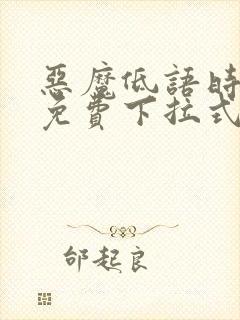 惡魔低語時
免費下拉式
邰起良